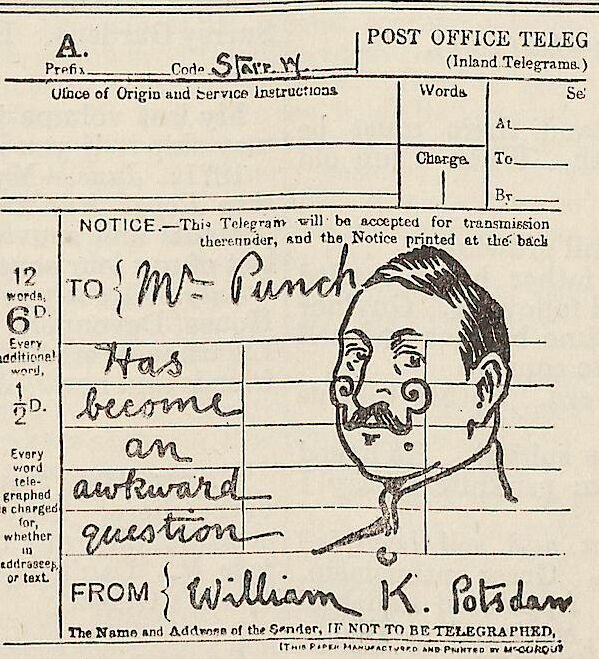 A.
Prefix Code Starr W.
POST OFFICE TELEG
(Inland Telegrams.)
Office of Origin and Service Instructions.
Words
Se
At
Charge
To
By
NOTICE.—This Telegram will be accepted for transmission
thereunder, and the Notice printed at the back
12
words,
6D.
Every
additional
word,
½D.
Every
word
tele-
graphed
is charged
for,
whether
in
addresses,
or text.
TO { Mr Punch
Has
become
an
awkward
question
FROM { William K. Potsdam
The Name and Address of the Sender, IF NOT TO BE TELEGRAPHED,
(THIS PAPER MANUFACTURED AND PRINTED BY McCORQU